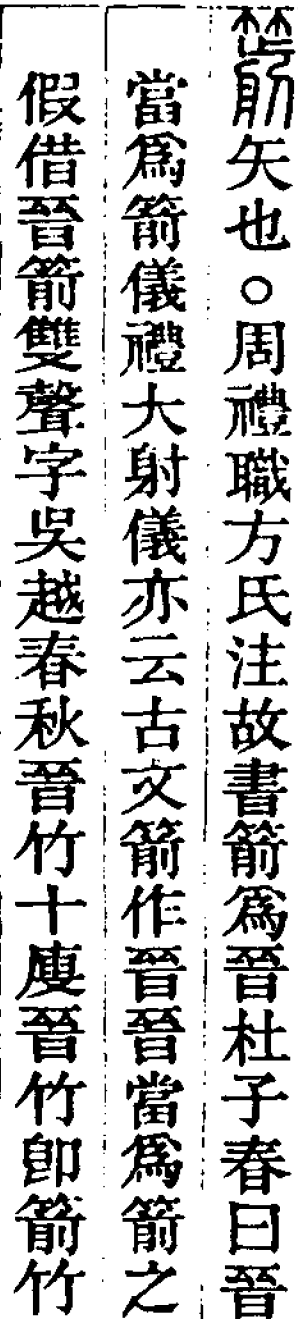 箭矢也○周禮職方氏注故書箭爲晉杜子春曰晉
當爲箭儀禮大射儀亦云古文箭作晉晉當爲箭之
假借晉箭雙聲字吳越春秋晉竹十廋晉竹卽箭竹